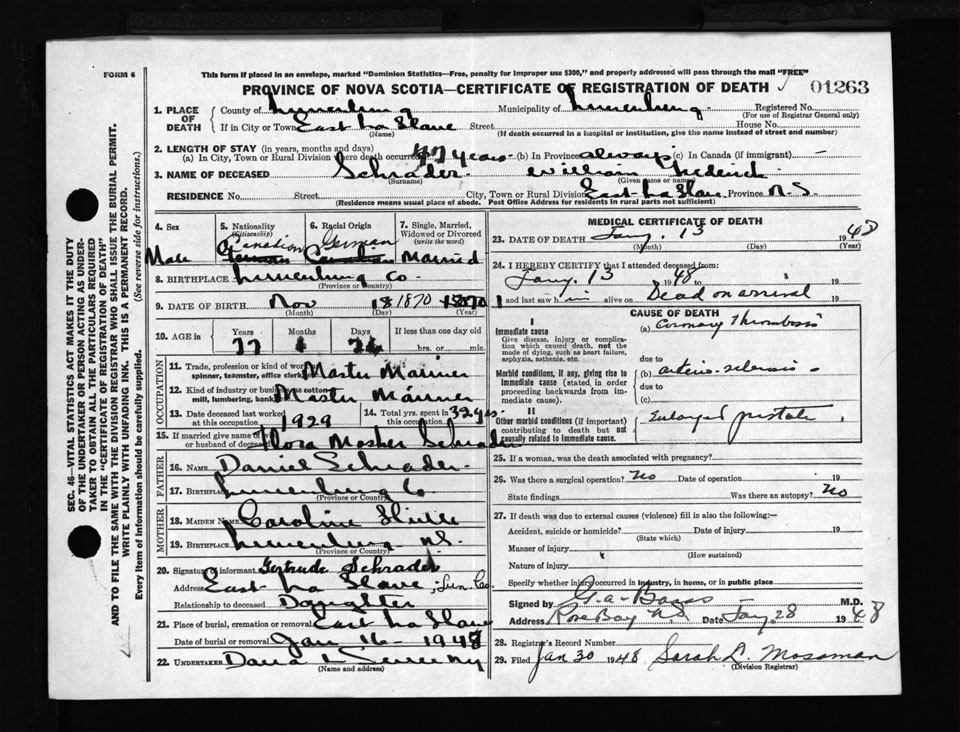 FORM 6
This form if placed in an envelope, marked "Dominion Statistics—Free, penalty for improper use $300," and properly addressed will pass through the mail "FREE"
PROVINCE OF NOVA SCOTIA—CERTIFICATE OF REGISTRATION OF DEATH 01263
1. PLACE OF DEATH County of Lunenburg Municipality of Lunenburg Registered No.
(For use of Registrar General only)
If in City or Town East La Have Street House No.
(Name) (If death occurred in a hospital or institution, give the name instead of street and number)
2. LENGTH OF STAY (in years, months and days)
(a) In City, Town or Rural Division where death occurred 47 years (b) In Province always (c) In Canada (if immigrant) —
3. NAME OF DECEASED Schrader William Frederick
(Surname) (Given name or names)
RESIDENCE No. Street City, Town or Rural Division East La Have Province N.S.
(Residence means usual place of abode. Post Office Address for residents in rural parts not sufficient)
SEC. 46—VITAL STATISTICS ACT MAKES IT THE DUTY
OF THE UNDERTAKER OR PERSON ACTING AS UNDER-
TAKER TO OBTAIN ALL THE PARTICULARS REQUIRED
IN THE "CERTIFICATE OF REGISTRATION OF DEATH"
AND TO FILE THE SAME WITH THE DIVISION REGISTRAR WHO SHALL ISSUE THE BURIAL PERMIT.
WRITE PLAINLY WITH UNFADING INK. THIS IS A PERMANENT RECORD.
Every item of information should be carefully supplied. (See reverse side for instructions.)
4. Sex 5. Nationality (Citizenship) 6. Racial Origin 7. Single, Married, Widowed or Divorced (write the word)
Canadian German
Male German Canadian Married
8. BIRTHPLACE Lunenburg Co.
(Province or Country)
9. DATE OF BIRTH Nov 18 1870 1870
(Month) (Day) (Year)
10. AGE in Years Months Days If less than one day old
77 1 26 hrs. or min.
OCCUPATION
11. Trade, profession or kind of work Master Mariner
spinner, teamster, office clerk
12. Kind of industry or business Master Mariner
mill, lumbering, bank
13. Date deceased last worked at this occupation 1929 14. Total yrs. spent in this occupation 32 yrs.
15. If married give name of or husband of deceased Flora Mosher Schrader
FATHER
16. NAME Daniel Schrader
17. BIRTHPLACE Lunenburg Co
(Province or Country)
MOTHER
18. MAIDEN NAME Caroline
19. BIRTHPLACE Lunenburg N.S.
(Province or Country)
20. Signature of informant Gertrude Schrader
Address East La Have, Lun. Co.
Relationship to deceased Daughter
21. Place of burial, cremation or removal East La Have
Date of burial or removal Jan 16 - 1948
22. UNDERTAKER
(Name and address)
MEDICAL CERTIFICATE OF DEATH
23. DATE OF DEATH Jany. 13 1948
(Month) (Day) (Year)
24. I HEREBY CERTIFY that I attended deceased from:
Jany. 13 1948 to 19
and last saw him alive on Dead on arrival 19
CAUSE OF DEATH
I
Immediate cause (a) Coronary Thrombosis
Give disease, injury or complication which caused death, not the mode of dying, such as heart failure, asphyxia, asthenia, etc.
due to
Morbid conditions, if any, giving rise to immediate cause (stated in order proceeding backwards from immediate cause). (b) arterio-sclerosis
due to
(c)
II
Other morbid conditions (if important) contributing to death but not causally related to immediate cause. Enlarged prostate
25. If a woman, was the death associated with pregnancy?
26. Was there a surgical operation? No Date of operation 19
State findings Was there an autopsy? No
27. If death was due to external causes (violence) fill in also the following:—
Accident, suicide or homicide? Date of injury 19
(State which)
Manner of injury
(How sustained)
Nature of injury
Specify whether injury occurred in industry, in home, or in public place
Signed by M.D.
Address Rose Bay N.S. Date Jany. 28 1948
28. Registrar's Record Number
29. Filed Jan 30 1948 Sarah L. Mossman
(Division Registrar)